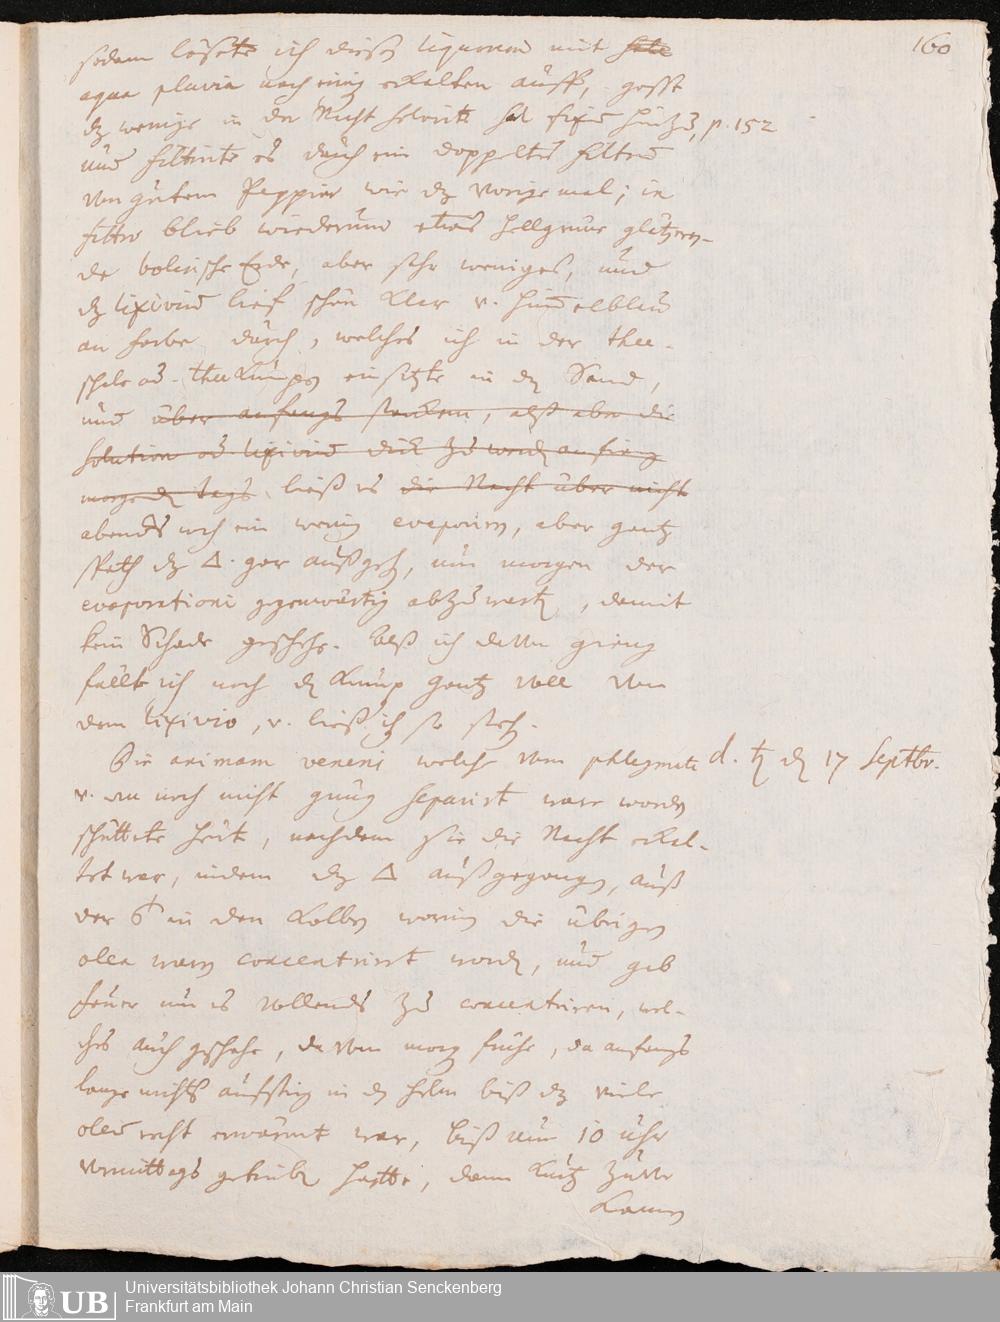 160
sodann lösete ich diesen liquorem mit
aqua pluvia nach einig erkalten auff, gosse
dz wenige in der Nacht solvirte sal fixum hinzu, p. 152
und filtrirte es durch ein doppeltes filtrum
von gutem Pappier wie dz vorige mal; in
filtro blieb wiederum etwas hellgrüne glitzern-
de bolarische Erde, aber sehr weniges, und
dz lixivium lief schön klar v. himmelblau
an farbe durch, welches ich in der thee-
schale od. theekümpgen einsetzte in den Sand,
und über anfangs starckem, alß aber die
solution od. lixivium dick zu werden anfieng
morgenden tags ließ es die Nacht über nicht
abends noch ein wenig evaporiren, aber gantz
spath dz △. gar außgehen, um morgen der
evaporationi gegenwärtig abzuwarten, damit
kein Schade geschehe. Alß ich davon gieng
füllte ich noch den Kump gantz voll von
dem lixivio, v. ließ es so stehen.
Die animam veneni welche vom phlegmate d. ♄ den 17 Septbr.
v. noch nicht genug separirt ware worden
schüttete heut, nachdem sie die Nacht erkal-
tet war, indem dz △ außgegangen, auß
der in den Kolben worin die übrigen
olea waren concentrirt worden, und gab
feuer um es vollends zu concentriren, wel-
ches auch geschahe, davon morgen frühe, da anfangs
lange nichts aufstieg in den helm biß dz viele
oleum recht erwärmt war, biß um 10 uhr
vormittags getrieben hatte, dann kurtz zuvor
kamen
Universitätsbibliothek Johann Christian Senckenberg
UB Frankfurt am Main